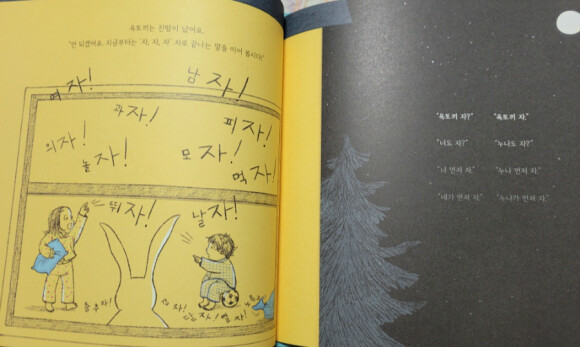 옥토끼는 신발이 났어요.
"안 되겠어요. 지금부터는 '자, 자, 자' 자로 끝나는 말을 이어 봅시다!"
여자!
남자!
과자!
피자!
의자!
모자!
놀자!
먹자!
뛰자!
날자!
춤추자!
"옥토끼 자?" "옥토끼 자."
"너도 자?" "누나도 자?"
"너 먼저 자." "누나 먼저 자."
"네가 먼저 자." "누나가 먼저 자."